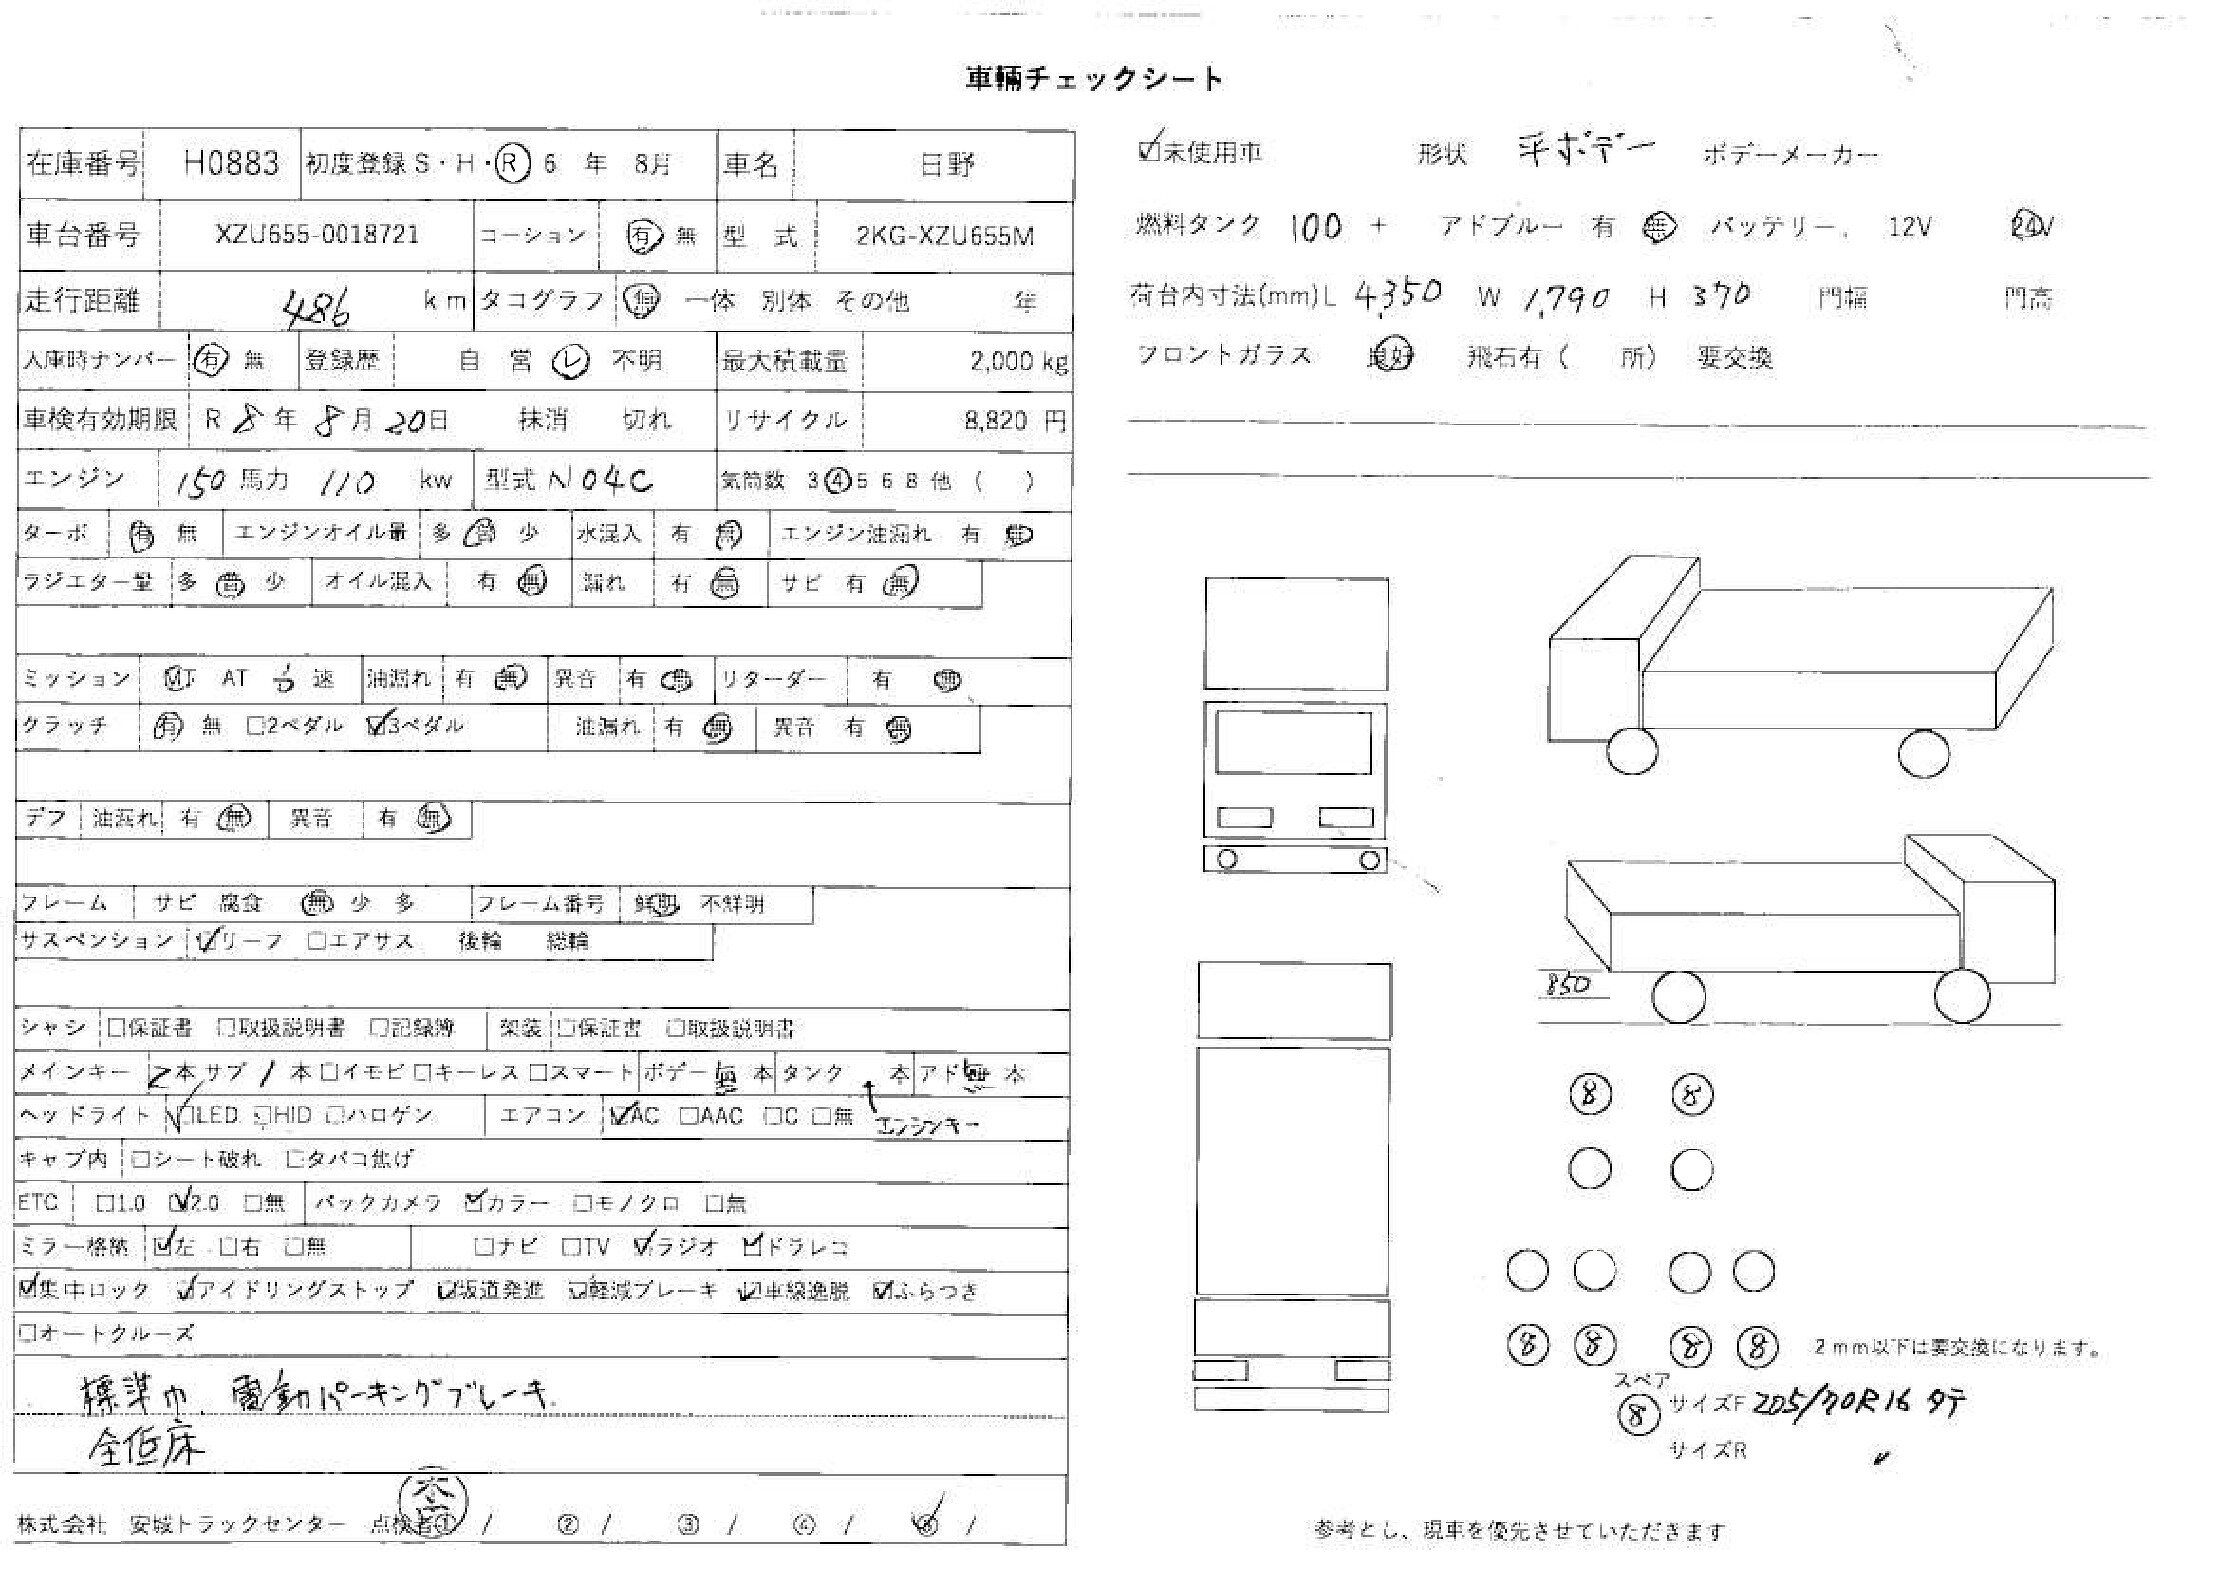 車輛チェックシート
在庫番号 H0883 初度登録 S・H・R 6 年 8月 車名 日野
車台番号 XZU655-0018721 コーション 有 無 型 式 2KG-XZU655M
走行距離 486 km タコグラフ 無 一体 別体 その他 年
入庫時ナンバー 有 無 登録歴 自 営 レ 不明 最大積載量 2,000 kg
車検有効期限 R 8 年 8 月 20 日 抹消 切れ リサイクル 8,820 円
エンジン 150 馬力 110 kw 型式 N04C 気筒数 3 4 5 6 8 他 ( )
ターボ 有 無 エンジンオイル量 多 普 少 水混入 有 無 エンジン油漏れ 有 無
ラジエター量 多 普 少 オイル混入 有 無 漏れ 有 無 サビ 有 無
ミッション MT AT 速 油漏れ 有 無 異音 有 無 リターダー 有 無
クラッチ 有 無 □2ペダル ☑3ペダル 油漏れ 有 無 異音 有 無
デフ 油漏れ 有 無 異音 有 無
フレーム サビ 腐食 無 少 多 フレーム番号 鮮明 不鮮明
サスペンション ☑リーフ □エアサス 後輪 総輪
シャシ □保証書 □取扱説明書 □記録簿 架装 □保証書 □取扱説明書
メインキー 2 本 サブ 1 本 □イモビ □キーレス □スマート ボデー 無 本 タンク 本 アド 無 本
ヘッドライト ☑LED □HID □ハロゲン エアコン ☑AC □AAC □C □無 ↑エンジンキー
キャブ内 □シート破れ □タバコ焦げ
ETC □1.0 ☑2.0 □無 バックカメラ ☑カラー □モノクロ □無
ミラー格納 ☑左 □右 □無 □ナビ □TV ☑ラジオ ☑ドラレコ
☑集中ロック ☑アイドリングストップ ☑坂道発進 ☑軽減ブレーキ ☑車線逸脱 ☑ふらつき
□オートクルーズ
標準巾、電動パーキングブレーキ
全低床
株式会社 安城トラックセンター 点検者① / ② / ③ / ④ / ⑤ /
☑未使用車 形状 平ボデー ボデーメーカー
燃料タンク 100 + アドブルー 有 無 バッテリー 12V 24V
荷台内寸法(mm) L 4,350 W 1,790 H 370 門幅 門高
フロントガラス 良好 飛石有 ( 所) 要交換
850
8 8
8 8 8 8 2mm以下は要交換になります。
スペア
8 サイズF 205/70R16 タテ
サイズR 〃
参考とし、現車を優先させていただきます